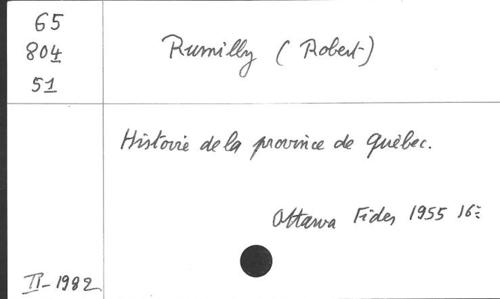 65
804
51
Rumilly ( Robert )
Histoire de la province de Québec.
Ottawa Fides 1955 16º
II-1982